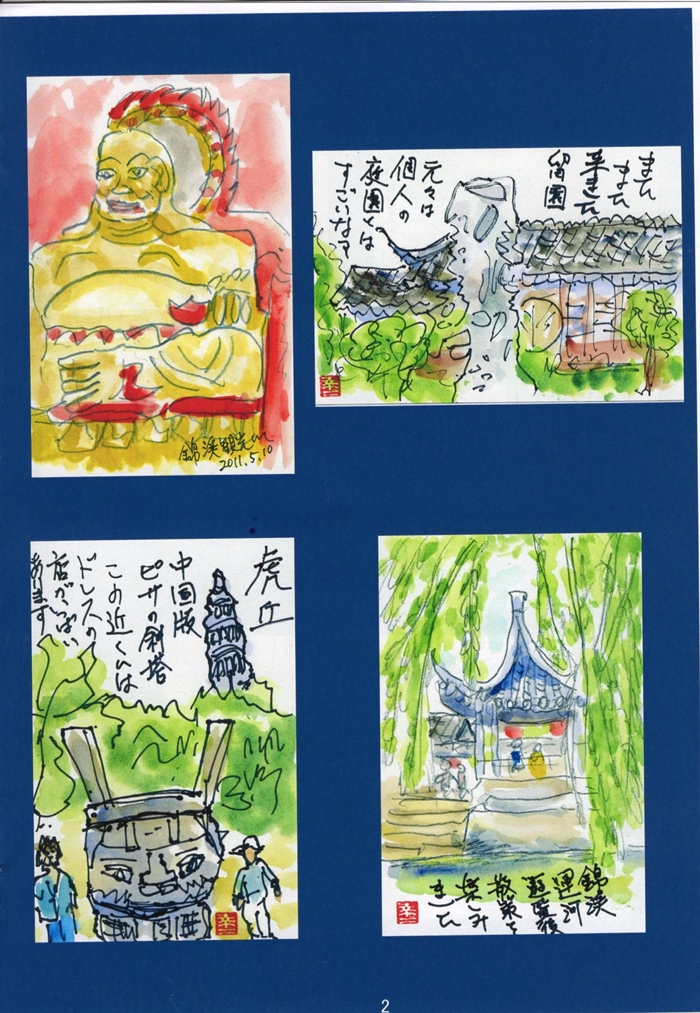 錦渓観光にて
2011.5.10
またまた
来ました
留園
元々は
個人の
庭園とは
すごいなア
幸二
虎丘
中国版
ピサの斜塔
この近くには
ドレスの
店がいっぱい
あります
幸二
錦渓
運河
散策を
楽しみ
ました
幸二
2